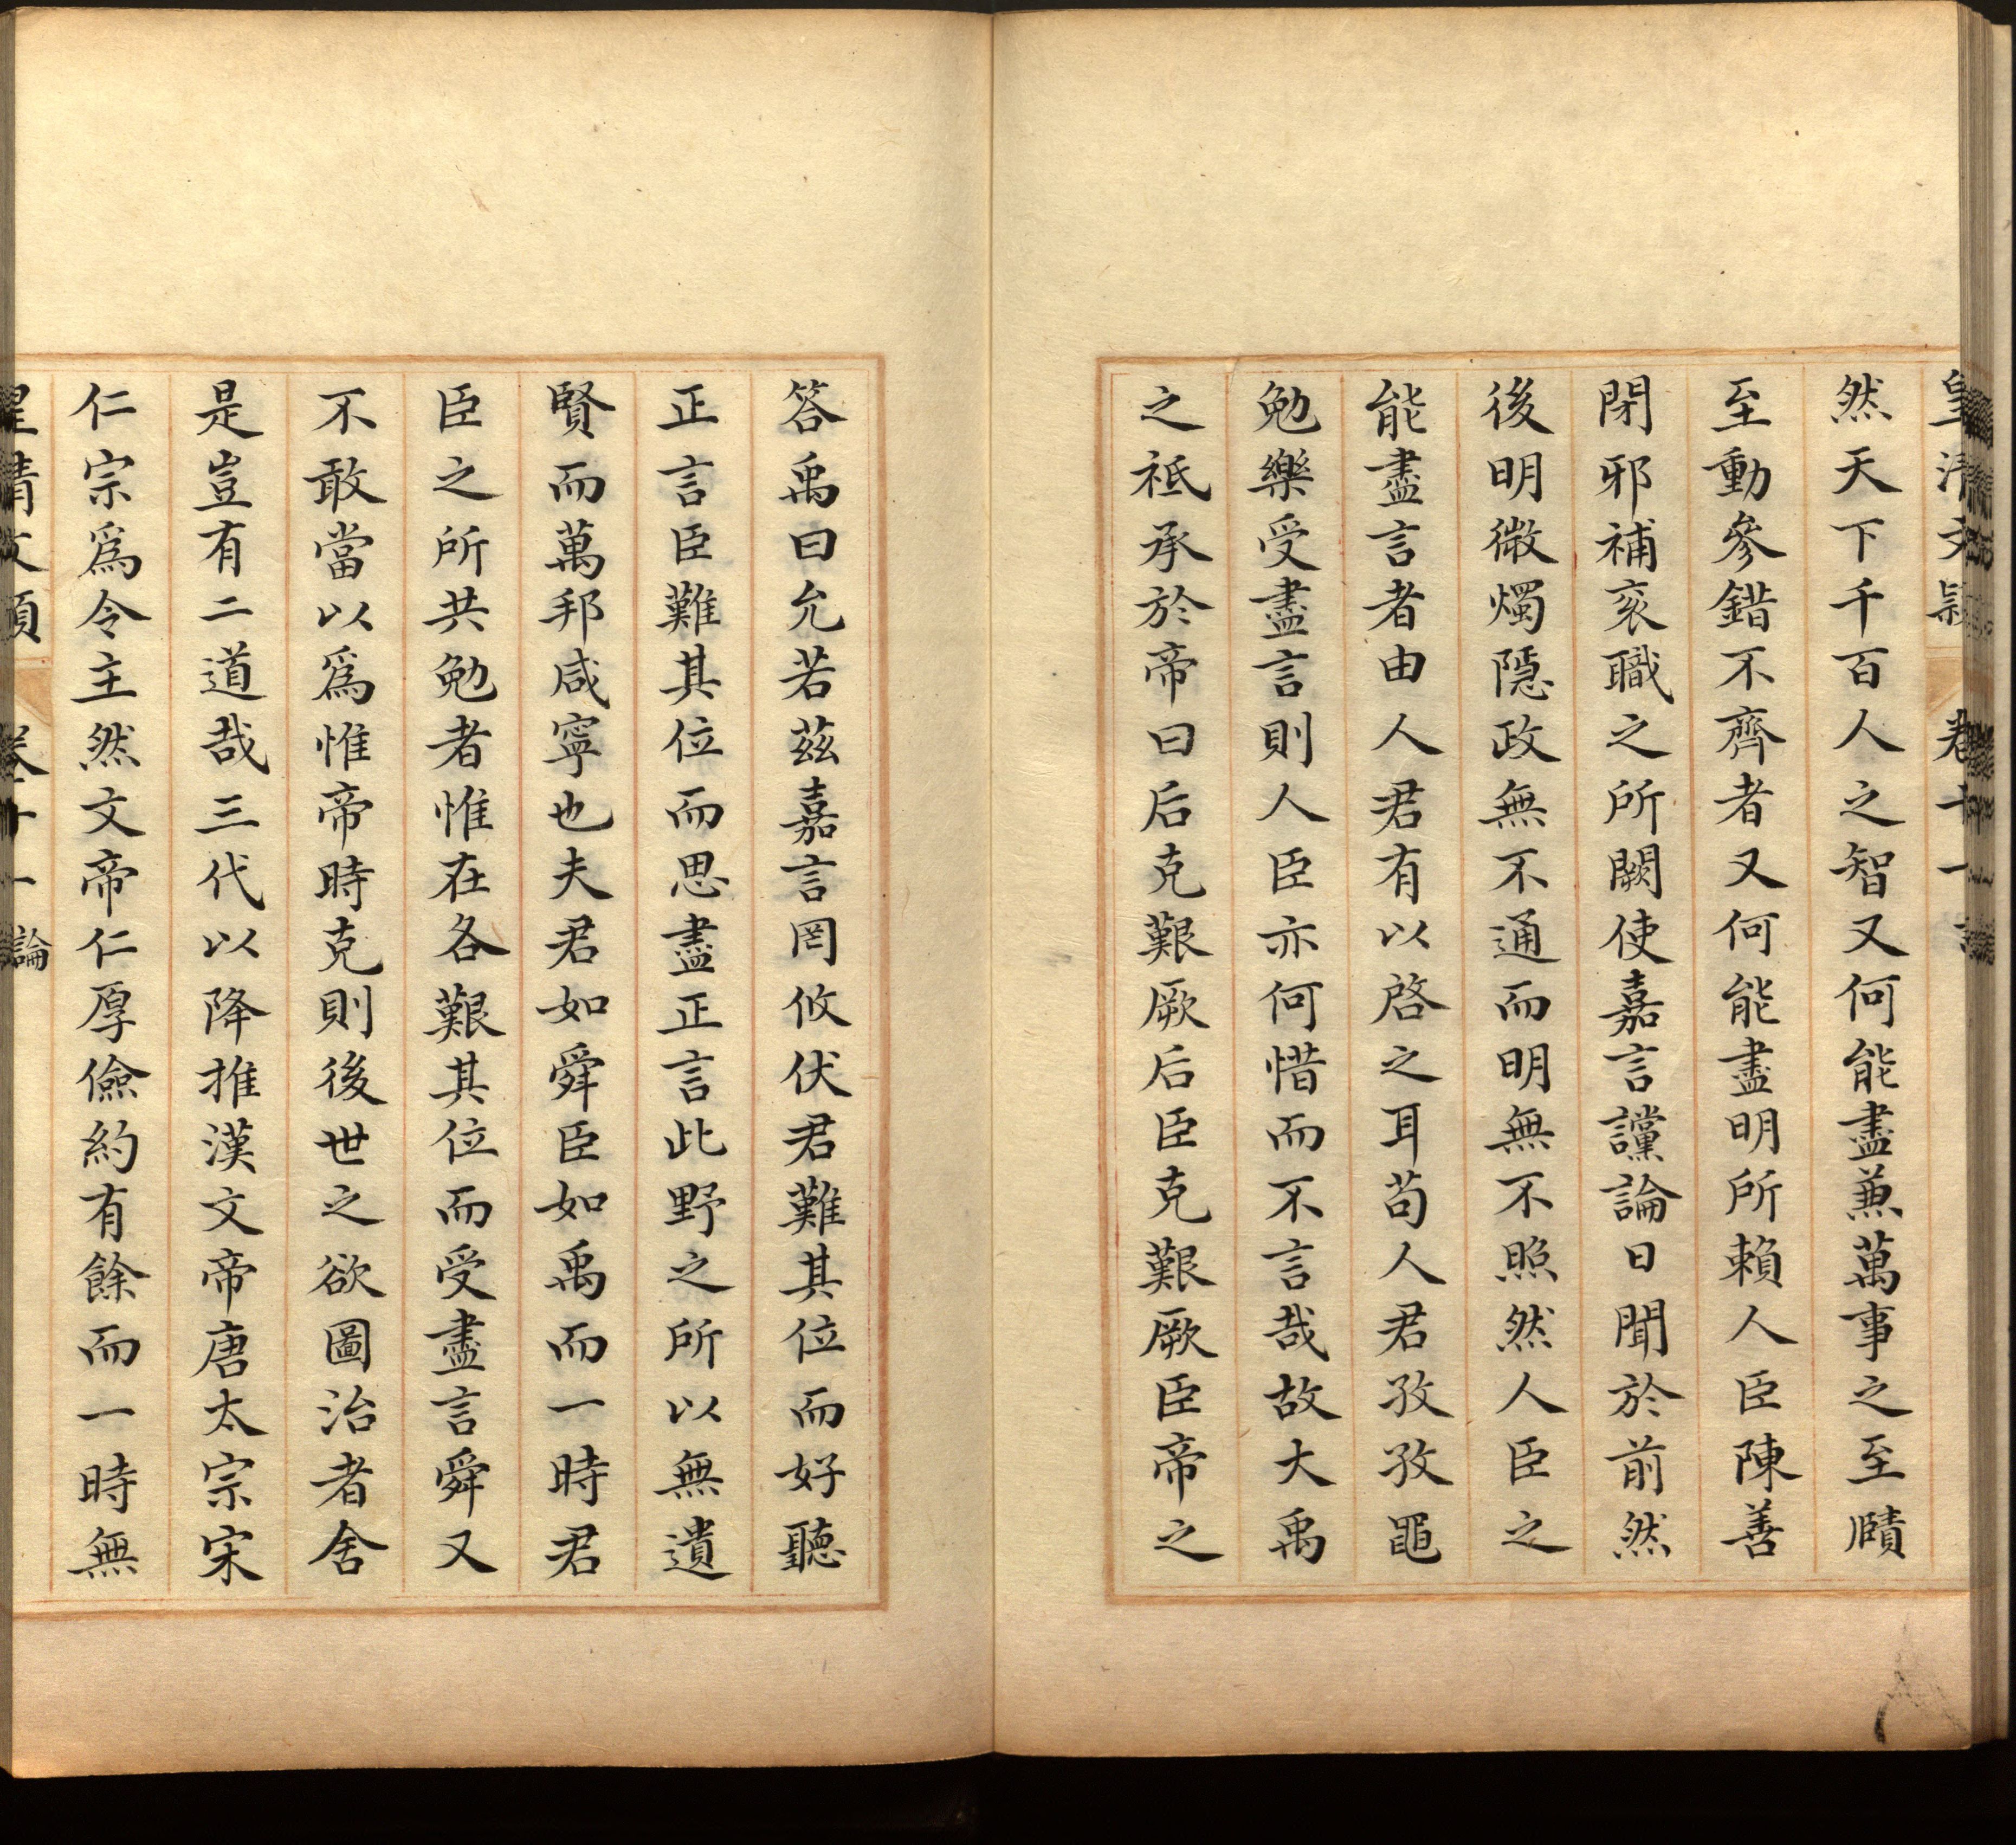 皇清文穎 卷十一
然天下千百人之智又何能盡兼萬事之至賾
至動參錯不齊者又何能盡明所賴人臣陳善
閉邪補袞職之所闕使嘉言讜論日聞於前然
後明微燭隱政無不通而明無不照然人臣之
能盡言者由人君有以啓之耳苟人君孜孜黽
勉樂受盡言則人臣亦何惜而不言哉故大禹
之祗承於帝曰后克艱厥后臣克艱厥臣帝之
答禹曰允若茲嘉言罔攸伏君難其位而好聽
正言臣難其位而思盡正言此野之所以無遺
賢而萬邦咸寧也夫君如舜臣如禹而一時君
臣之所共勉者惟在各艱其位而受盡言舜又
不敢當以為惟帝時克則後世之欲圖治者舍
是豈有二道哉三代以降推漢文帝唐太宗宋
仁宗為令主然文帝仁厚儉約有餘而一時無
皇清文穎 卷十一 論